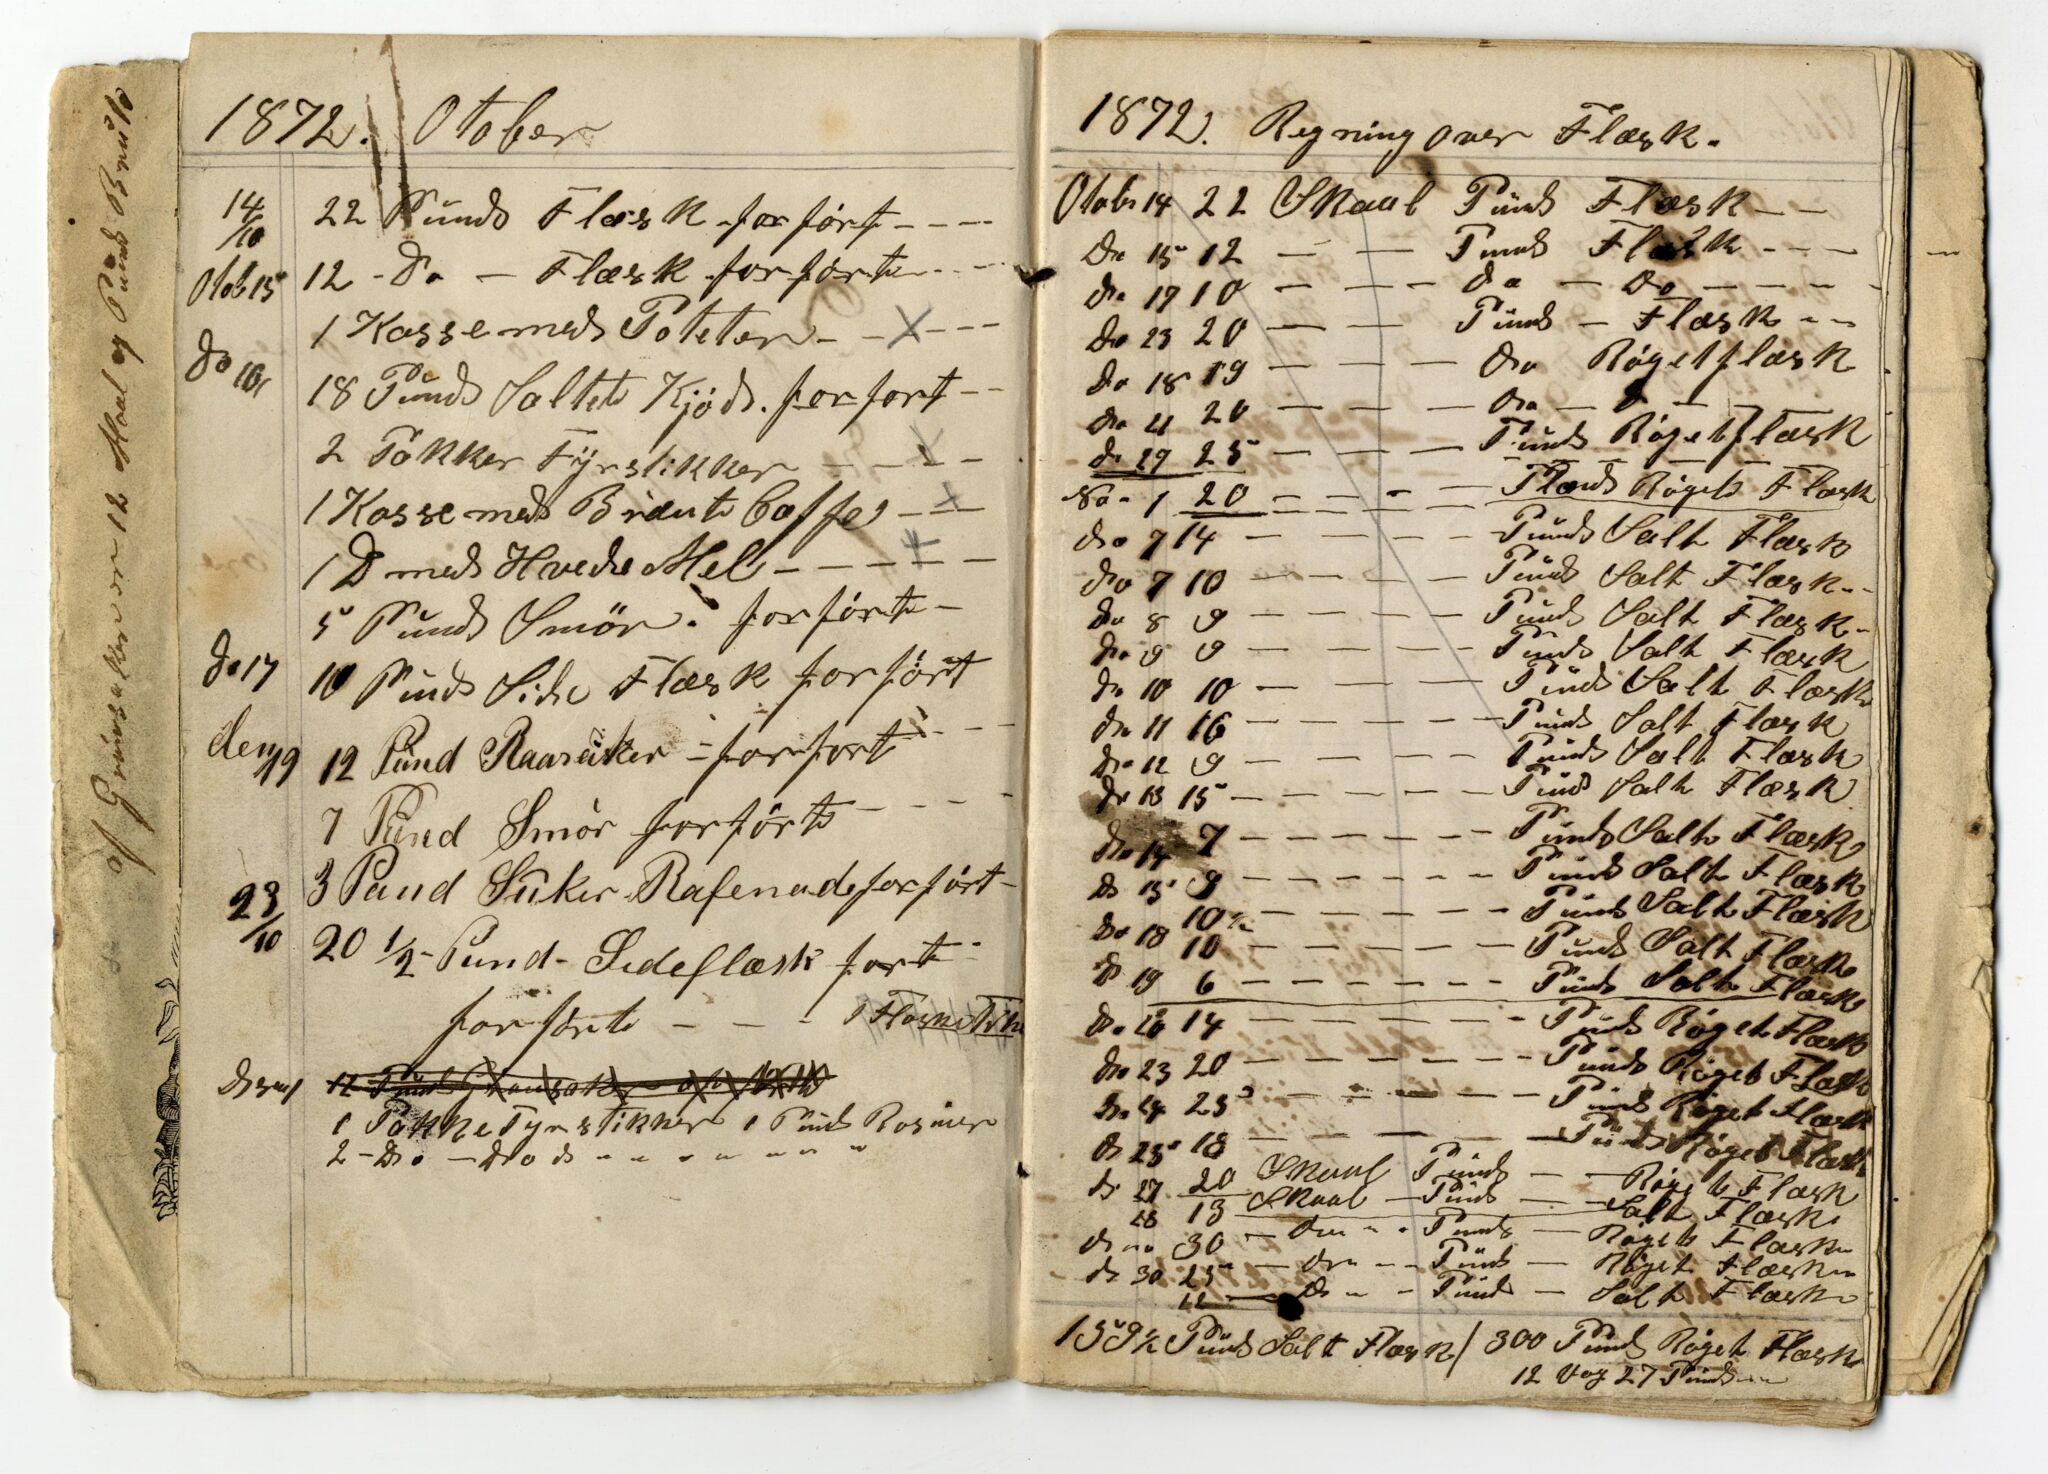 af Grünsaker er 12 Maal og Pund Brüto
1872. Otober
14/10 22 Punds Flæsk forført - - - -
Otob 15 12 - Do - Flæsk forførte - - - -
1 Kasse meds Poteter - - X - - -
Do 16 18 Punds Saltet Kjöds. forfort - -
2 Pakker Fÿrstikker - - - - -
1 Kasse meds Brænte Caffe - - -
1 D meds Hvede Mel - - - - -
5 Punds Smör. forførte -
Do 17 10 Punds Side Flæsk forførte
den 19 12 Pund Raasuker - forfort - - -
7 Pünd Smør forførte - - - -
3 Pund Suker Rafenade forført -
23/10 20 1/2 - Pund - Sideflæsk fort -
forførte - - - 1 Flaske
12 Pund Grønsaker
1 Pakke Fyrstikker 1 Pünds Rosiner
2 - Do - Do ds " " " " " " "
1872. Regning over Flæsk.
Otobr 14 22 Skaal Pünds Flæsk - -
Do 15 12 - - - Punds Flæsk - - -
Do 17 10 - - - Do - Do - - - -
Do 23 20 - - - Pünds - Flæsk - -
Do 18 19 - - - - Do Røgetflæsk
Do 21 20 - - - - Do - D - -
Do 29 25 - - - - Pünds Røgetflæsk
No - 1 20 - - - - Flænds Røgets Flæsk
Do 7 14 - - - - Pünds Salt Flæsk
Do 7 10 - - - - Pünds Salt Flæsk - -
Do 8 9 - - - - Pünds Salt Flæsk -
Do 9 9 - - - - Pünds Salt Flæsk
Do 10 10 - - - - Pünds Salt Flæsk
Do 11 16 - - - - Pünds Salt Flæsk
Do 12 9 - - - - Pünds Salt Flæsk
Do 13 15 - - - - Pünds Salt Flæsk
Do 14 7 - - - - Pünds Salt Flæsk
Do 15 9 - - - - Pünds Salt Flæsk
10 1/2 - - - - Pünds Salt Flæsk
Do 18 10 - - - - Pünds Salt Flæsk
D 19 6 - - - - Pünds Salt Flæsk
Do 20 14 - - - - Pünds Røget Flæsk
Do 23 20 - - - - Pünds Røget Flæsk
Do 24 25 - - - - Pünds Røget Flæsk
D 25 18 - - - - Pünds Røget Flæsk
D 27 20 Skaal Pünds - - Røget Flæsk
28 13 Skaal - Pünds - - Salt Flæsk
D " " 30 - Do " " Punds - Røget Flæsk
D 30 25 - Do " - Pünds - Røget Flæsk
12 - Do " - Pünds - Salt Flæsk
159 1/2 Pünds Salt Flæsk / 300 Pünds Røget Flæsk
12 Vog 27 Pünds